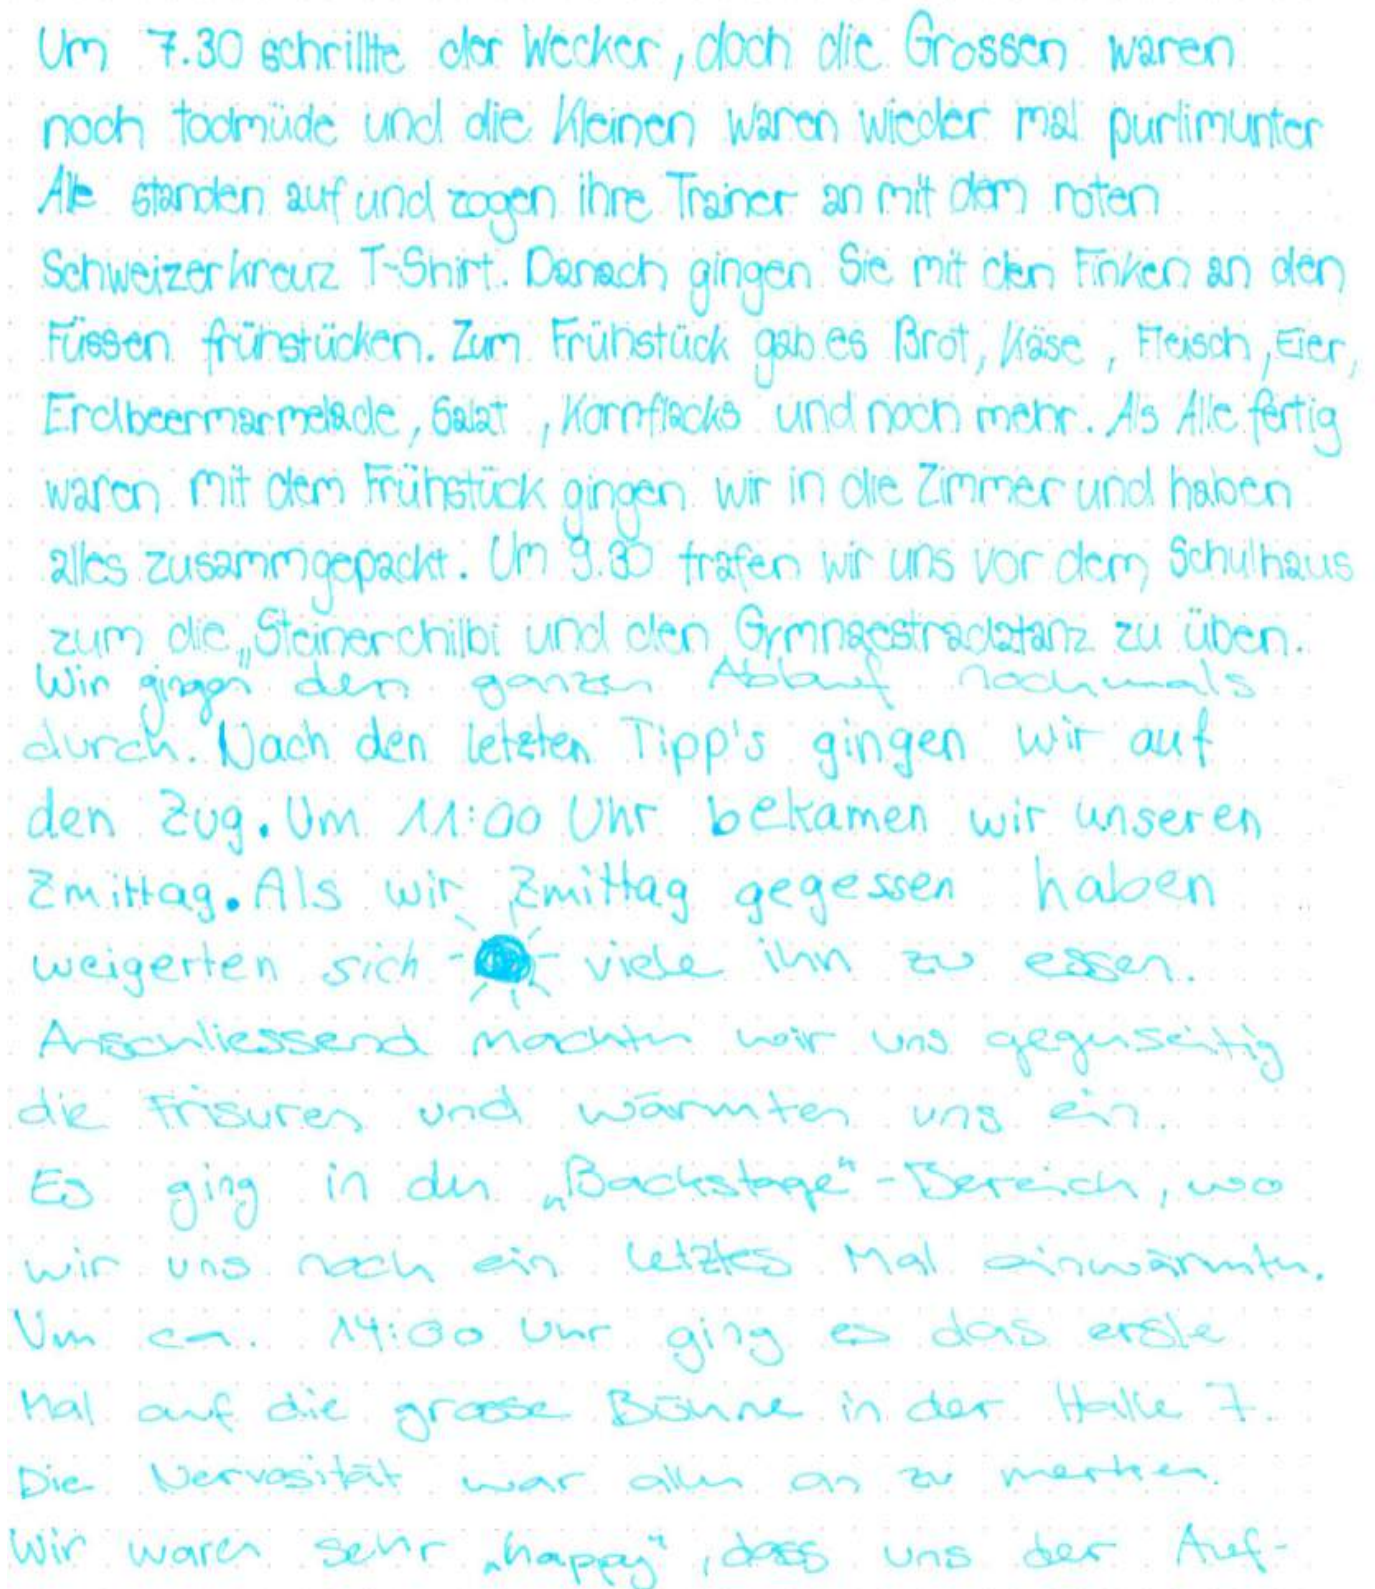 Um 7.30 schrillte der Wecker, doch die Grossen waren
noch todmüde und die Kleinen waren wieder mal purlimunter
Alle standen auf und zogen ihre Trainer an mit dem roten
Schweizerkreuz T-Shirt. Danach gingen Sie mit den Finken an den
Füssen frühstücken. Zum Frühstück gab es Brot, Käse, Fleisch, Eier,
Erdbeermarmelade, Salat, Kornflacks und noch mehr. Als Alle fertig
waren mit dem Frühstück gingen wir in die Zimmer und haben
alles zusammgepackt. Um 9.30 trafen wir uns vor dem Schulhaus
zum die „Steinerchilbi und den Gymnaestradatanz zu üben.
Wir gingen den ganzen Ablauf nochmals
durch. Nach den letzten Tipp's gingen wir auf
den Zug. Um 11:00 Uhr bekamen wir unseren
Zmittag. Als wir Zmittag gegessen haben
weigerten sich viele ihn zu essen.
Anschliessend machten wir uns gegenseitig
die Frisuren und wärmten uns ein.
Es ging in den „Backstage"-Bereich, wo
wir uns noch ein letztes Mal einwärmten.
Um ca. 14:00 Uhr ging es das erste
Mal auf die grosse Bühne in der Halle 7.
Die Nervosität war allen an zu merken.
Wir waren sehr „happy", dass uns der Auf-